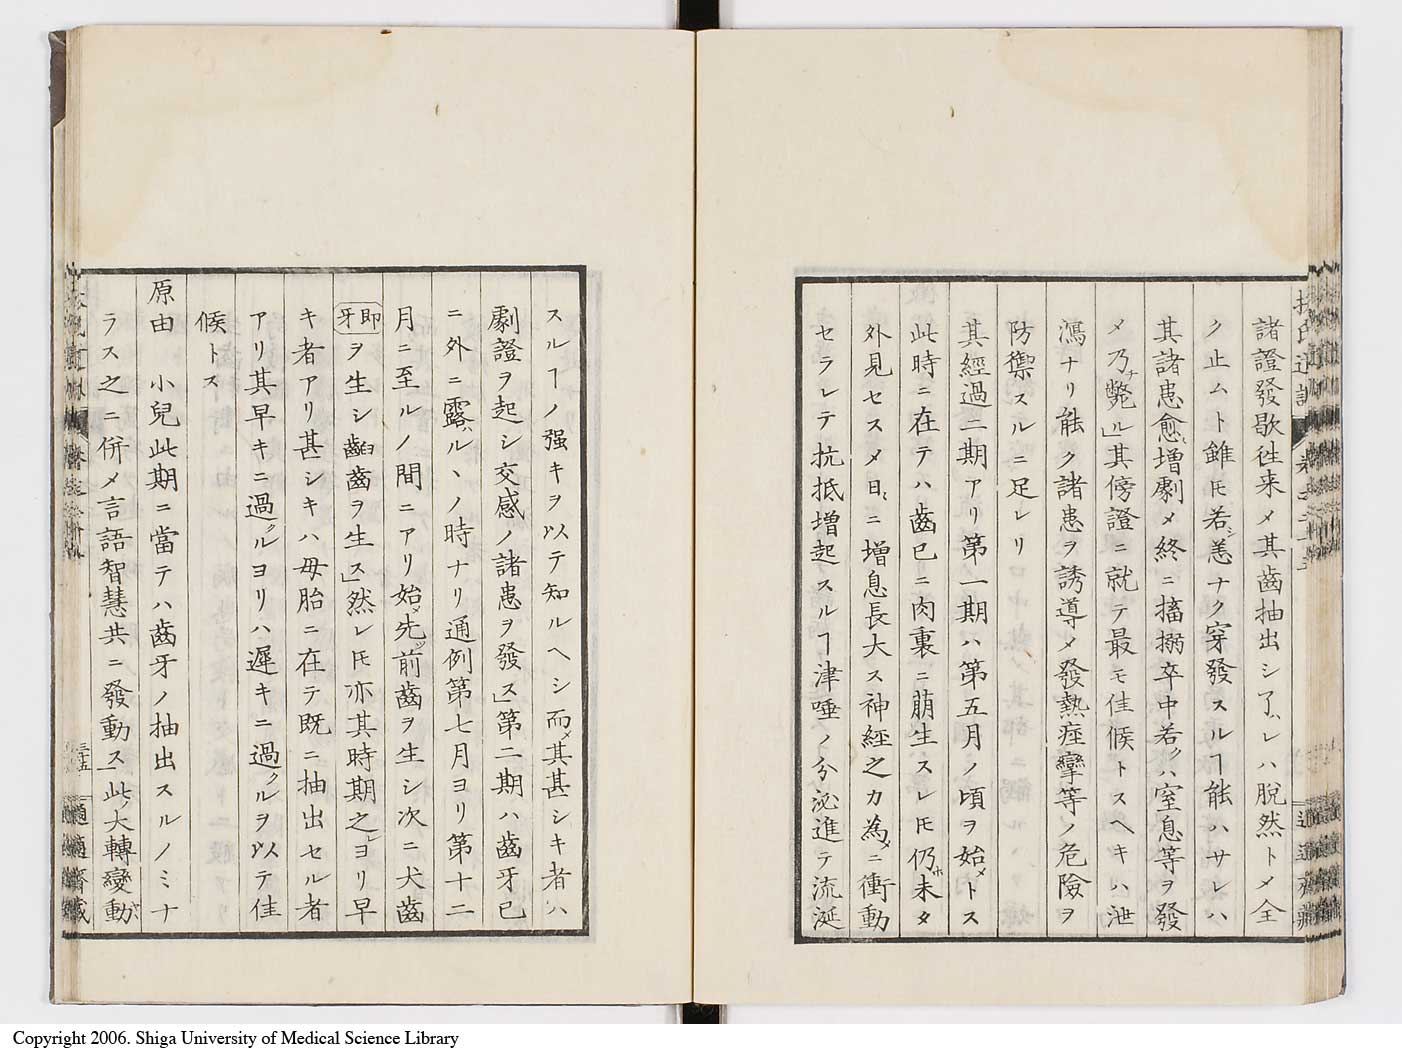 諸證發歇徃来メ其齒抽出シ了ハレハ脱然トメ全
ク止ムト雖モ若シ恙ナク穿發スルヿ能ハサレハ
其諸患愈増劇メ終ニ搐搦卒中若クハ窒息等ヲ發
メ乃チ斃ル」其傍證ニ就テ最モ佳候トスヘキハ泄
瀉ナリ能ク諸患ヲ誘導メ發熱痙攣等ノ危險ヲ
防禦スルニ足レリ
其經過二期アリ第一期ハ第五月ノ頃ヲ始メトス
此時ニ在テハ齒已ニ肉裏ニ萠生スレ𪜈仍ホ未タ
外見セスメ日ニ増息長大ス神經之カ為メニ衝動
セラレテ抗抵増起スルヿ津唾ノ分沁進テ流涎
スルヿノ强キヲ以テ知ルヘシ而メ其甚シキ者ハ
劇證ヲ起シ交感ノ諸患ヲ發ス」第二期ハ齒牙已
ニ外ニ露ハルヽノ時ナリ通例第七月ヨリ第十二
月ニ至ルノ間ニアリ始メ先ツ前齒ヲ生シ次ニ犬齒
即牙ヲ生シ齫齒ヲ生ス」然レ𪜈亦其時期之ヨリ早
キ者アリ甚シキハ母胎ニ在テ既ニ抽出セル者
アリ其早キニ過クルヨリハ遲キニ過クルヲ以テ佳
候トス
原由 小兒此期ニ當テハ齒牙ノ抽出スルノミナ
ラス之ニ併メ言語智慧共ニ發動ス」此ノ大轉變動
三十五
適適齋藏
Copyright 2006. Shiga University of Medical Science Library